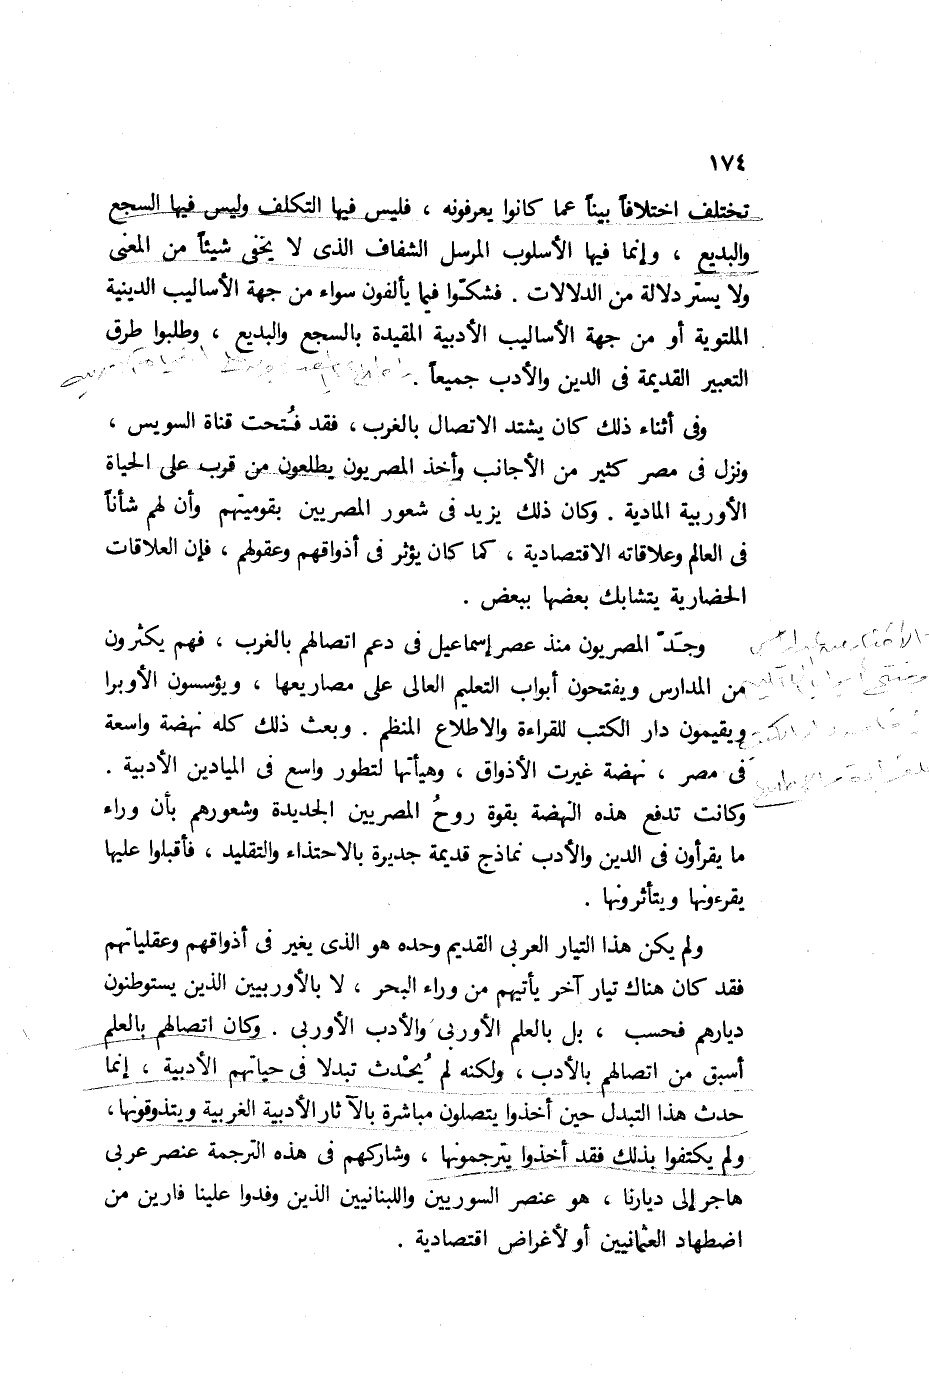 ١٧٤
تختلف اختلافاً بيناً عما كانوا يعرفونه ، فليس فيها التكلف وليس فيها السجع
والبديع ، وإنما فيها الأسلوب المرسل الشفاف الذى لا يخفى شيئاً من المعنى
ولا يستر دلالة من الدلالات . فشكّوا فيما يألفون سواء من جهة الأساليب الدينية
الملتوية أو من جهة الأساليب الأدبية المقيدة بالسجع والبديع ، وطلبوا طرق
التعبير القديمة فى الدين والأدب جميعاً .
وفى أثناء ذلك كان يشتد الاتصال بالغرب ، فقد فُتحت قناة السويس ،
ونزل فى مصر كثير من الأجانب وأخذ المصريون يطلعون من قرب على الحياة
الأوربية المادية . وكان ذلك يزيد فى شعور المصريين بقوميتهم وأن لهم شأناً
فى العالم وعلاقاته الاقتصادية ، كما كان يؤثر فى أذواقهم وعقولهم ، فإن العلاقات
الحضارية يتشابك بعضها ببعض .
وجدّ المصريون منذ عصر إسماعيل فى دعم اتصالهم بالغرب ، فهم يكثرون
من المدارس ويفتحون أبواب التعليم العالى على مصاريعها ، ويؤسسون الأوبرا
ويقيمون دار الكتب للقراءة والاطلاع المنظم . وبعث ذلك كله نهضة واسعة
فى مصر ، نهضة غيرت الأذواق ، وهيأتها لتطور واسع فى الميادين الأدبية .
وكانت تدفع هذه النهضة بقوة روحُ المصريين الجديدة وشعورهم بأن وراء
ما يقرأون فى الدين والأدب نماذج قديمة جديرة بالاحتذاء والتقليد ، فأقبلوا عليها
يقرءونها ويتأثرونها .
ولم يكن هذا التيار العربى القديم وحده هو الذى يغير فى أذواقهم وعقلياتهم
فقد كان هناك تيار آخر يأتيهم من وراء البحر ، لا بالأوربيين الذين يستوطنون
ديارهم فحسب ، بل بالعلم الأوربى والأدب الأوربى . وكان اتصالهم بالعلم
أسبق من اتصالهم بالأدب ، ولكنه لم يُحْدث تبدلا فى حياتهم الأدبية ، إنما
حدث هذا التبدل حين أخذوا يتصلون مباشرة بالآثار الأدبية الغربية ويتذوقونها ،
ولم يكتفوا بذلك فقد أخذوا يترجمونها ، وشاركهم فى هذه الترجمة عنصر عربى
هاجر إلى ديارنا ، هو عنصر السوريين واللبنانيين الذين وفدوا علينا فارين من
اضطهاد العثمانيين أو لأغراض اقتصادية .